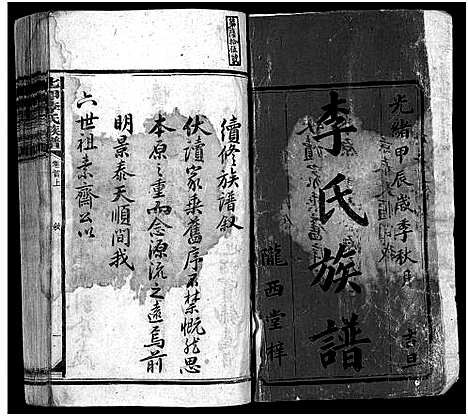 光緒甲辰歲季秋月
吉旦
李氏族譜
隴西堂梓
續修族譜敘
伏讀家乘舊序不禁慨然思
本原之重而念源流之遠焉前
明景泰天順間我
六世祖素齋公以
李氏族譜
卷首上
敘
一